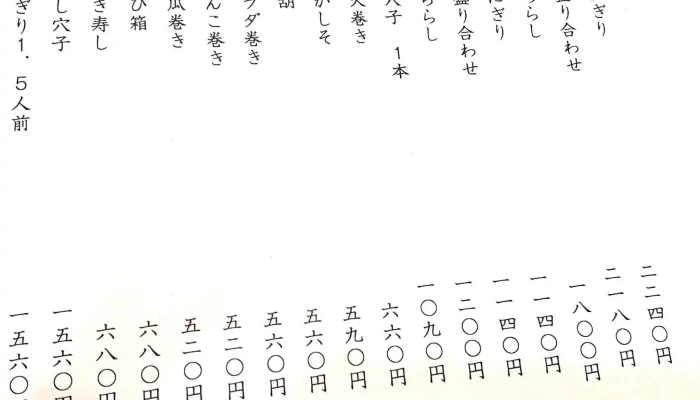 ぎり 二二四〇円
り合わせ 二一八〇円
らし 一八〇〇円
ぎり 一一四〇円
盛り合わせ 一一四〇円
らし 一二〇〇円
穴子 1本 一〇九〇円
巻き 六六〇円
しそ 五九〇円
五六〇円
ダ巻き 五六〇円
んこ巻き 五二〇円
瓜巻き 五二〇円
び箱 六八〇円
き寿し 六八〇円
し穴子 一五六〇円
ぎり1.5人前 一五六〇